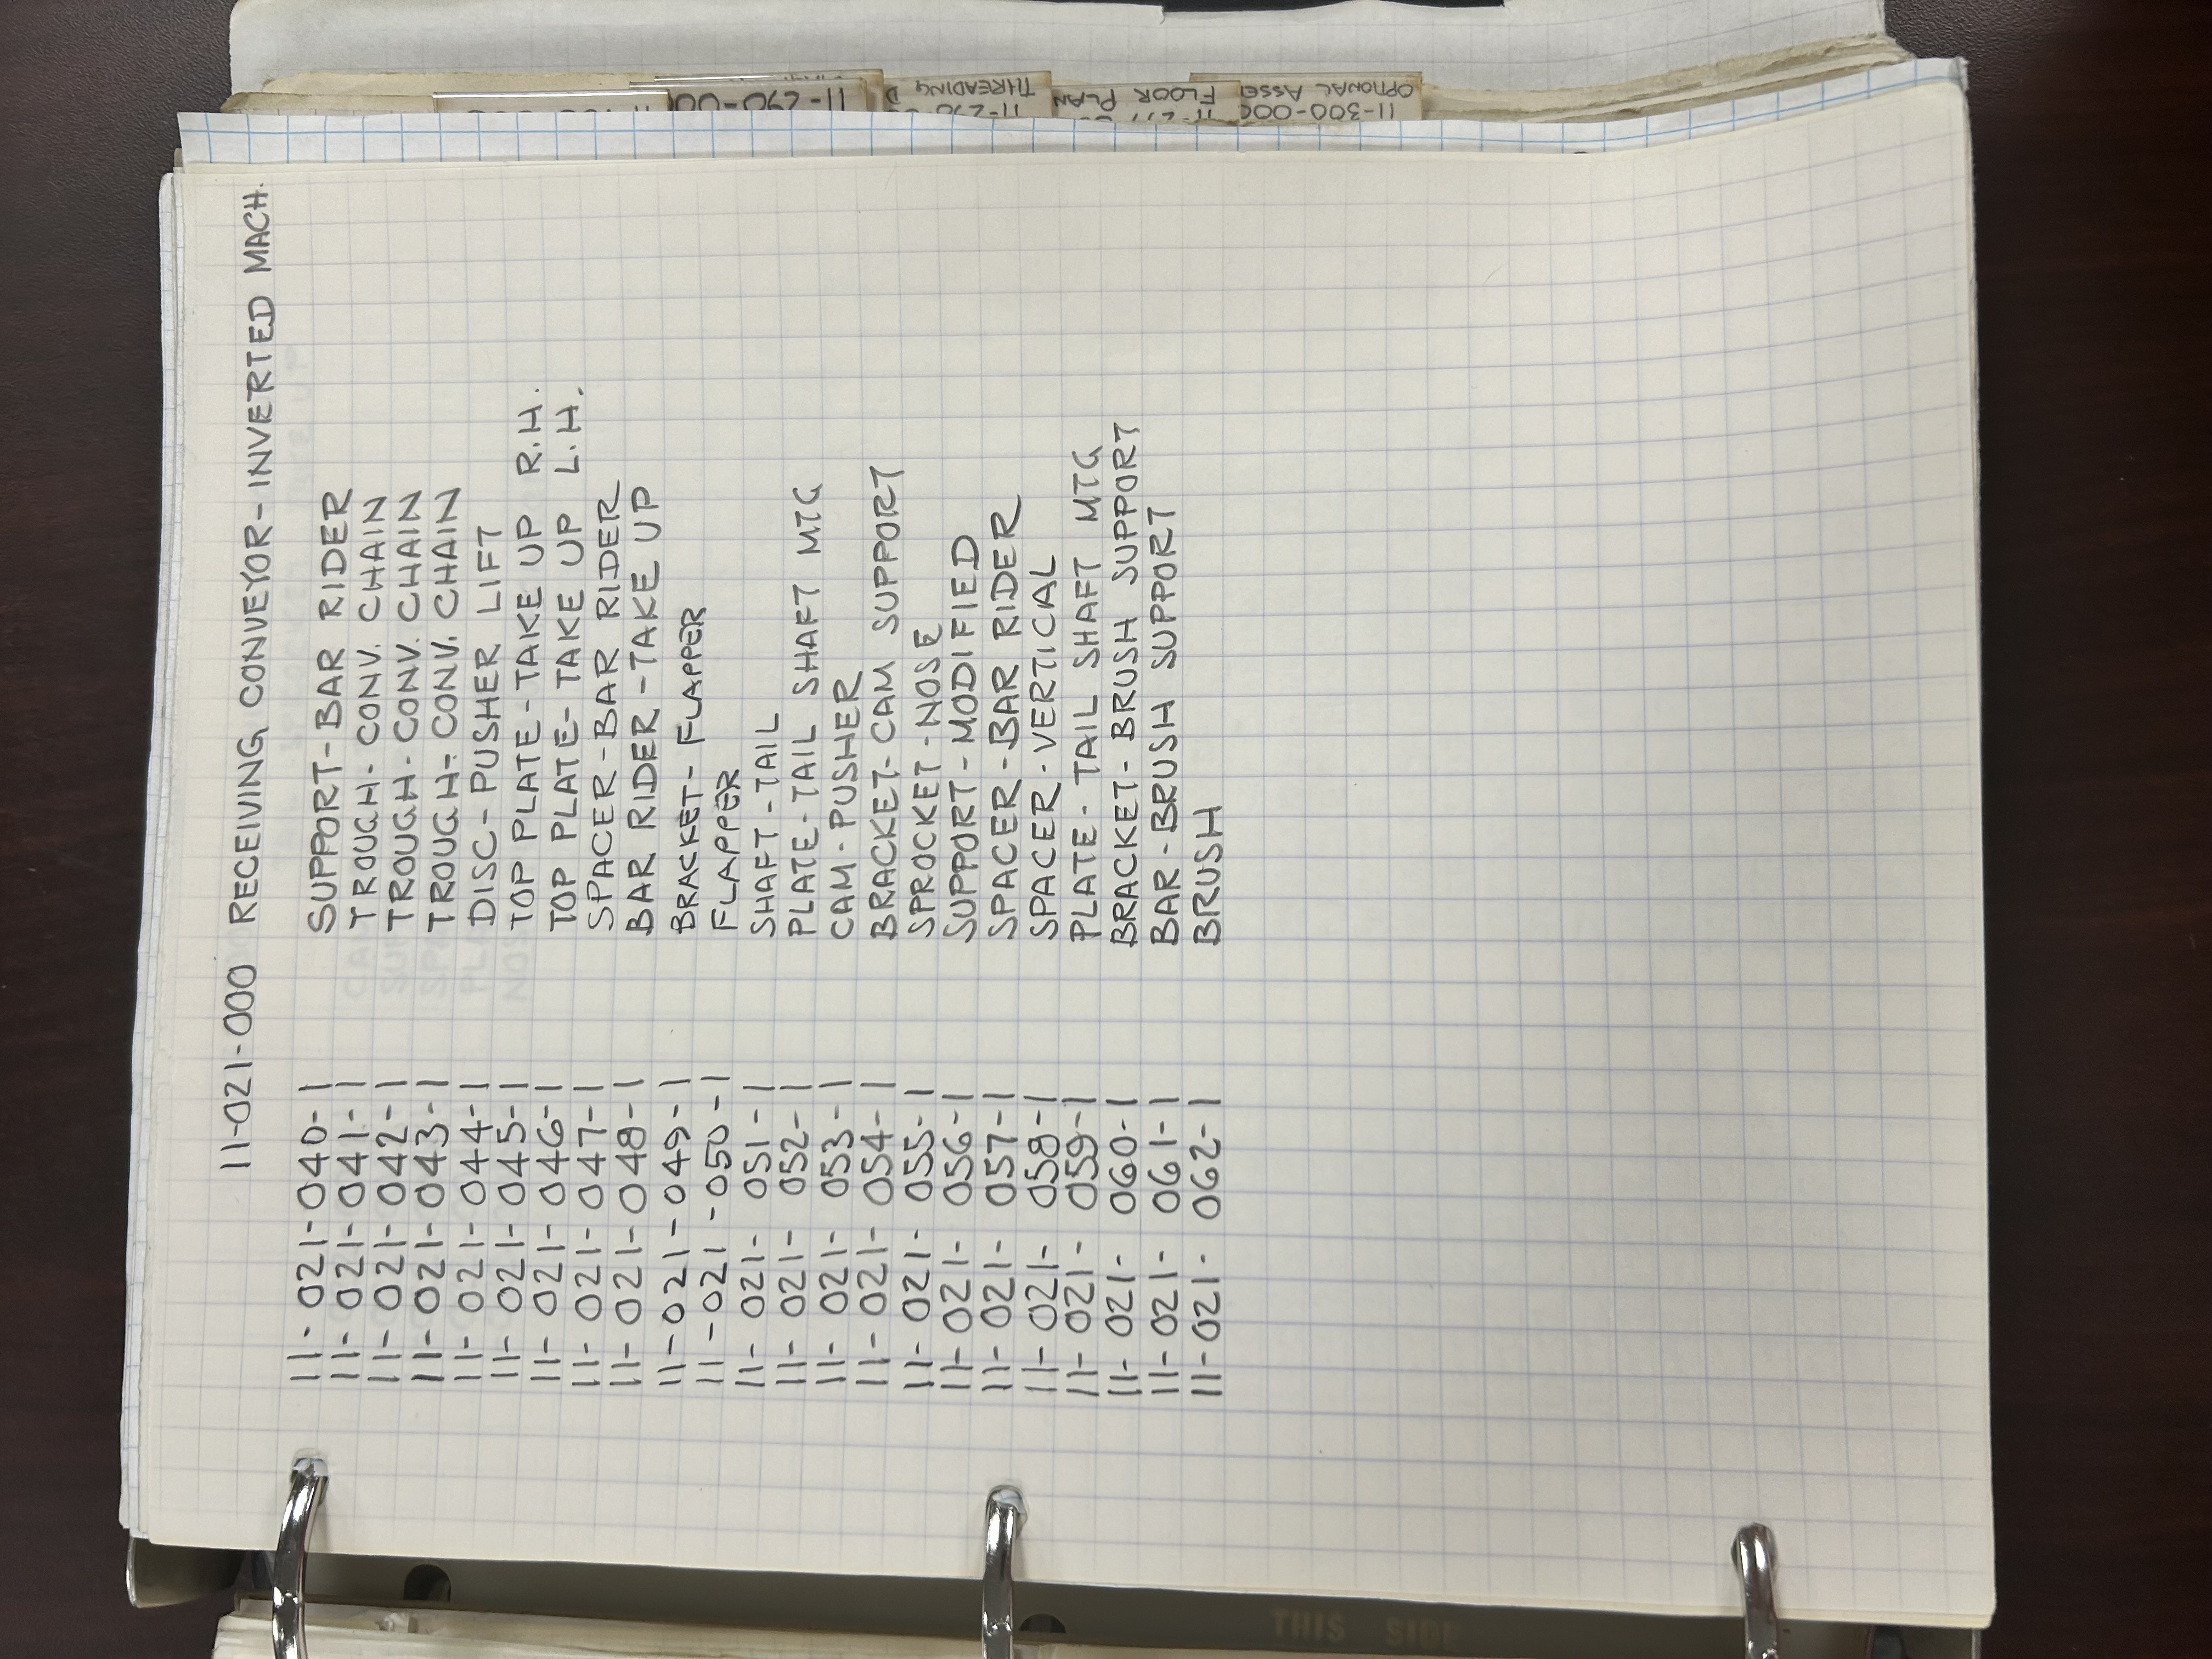 11-021-000 RECEIVING CONVEYOR-INVERTED MACH.
11-021-040-1 SUPPORT-BAR RIDER
11-021-041-1 TROUGH-CONV. CHAIN
11-021-042-1 TROUGH-CONV. CHAIN
11-021-043-1 TROUGH-CONV. CHAIN
11-021-044-1 DISC-PUSHER LIFT
11-021-045-1 TOP PLATE-TAKE UP R.H.
11-021-046-1 TOP PLATE-TAKE UP L.H.
11-021-047-1 SPACER-BAR RIDER
11-021-048-1 BAR RIDER-TAKE UP
11-021-049-1 BRACKET-FLAPPER
11-021-050-1 FLAPPER
11-021-051-1 SHAFT-TAIL
11-021-052-1 PLATE-TAIL SHAFT MTG
11-021-053-1 CAM-PUSHER
11-021-054-1 BRACKET-CAM SUPPORT
11-021-055-1 SPROCKET-NOSE
11-021-056-1 SUPPORT-MODIFIED
11-021-057-1 SPACER-BAR RIDER
11-021-058-1 SPACER-VERTICAL
11-021-059-1 PLATE-TAIL SHAFT MTG
11-021-060-1 BRACKET-BRUSH SUPPORT
11-021-061-1 BAR-BRUSH SUPPORT
11-021-062-1 BRUSH
THREADING D
FLOOR PLAN
11-300-000
OPTIONAL ASSE
THIS SIDE